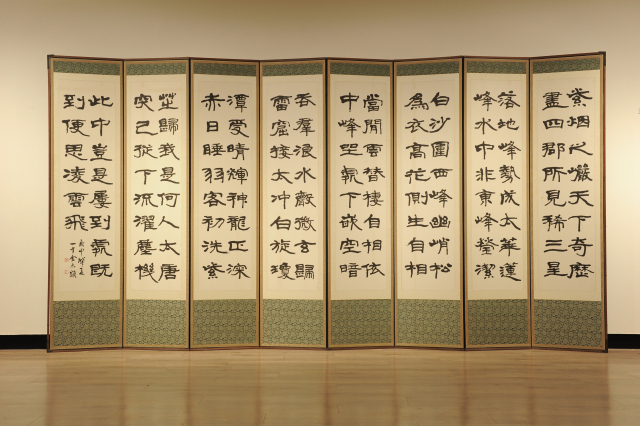 紫烟之巘天下奇歷
畫四郡所見稀三星
落地峰勢成太華蓮
峰水中非東峰瑩潔
白沙園西峰幽峭松
爲衣高花側生自相
當間雲替棲自相依
中峰氣下嵌空暗
呑羣浪水微玄歸
雷窟接太冲白旋瓊
潭愛晴輝神龍正深
赤日睡羽客初洗紫
歸我是何人太唐
突己從下流濯塵機
此中豈是屢到氣旣
到便思凌雲飛